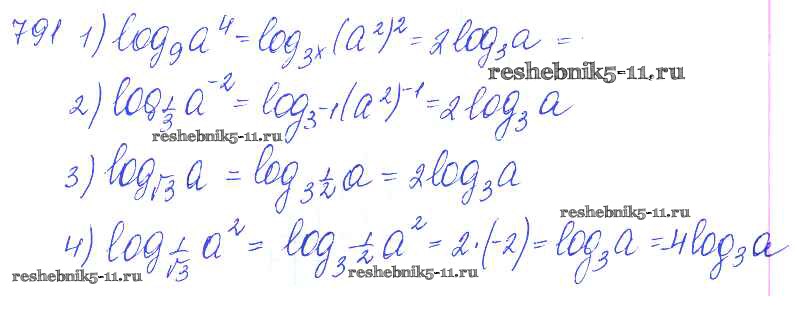 791 1) log₉a⁴ = log₃ₓ(a²)² = 2log₃a =
reshebnik5-11.ru
2) log_{1/3} a⁻² = log₃₋₁(a²)⁻¹ = 2log₃a
reshebnik5-11.ru
3) log_{√3} a = log_{3^{1/2}} a = 2log₃a
reshebnik5-11.ru
4) log_{1/√3} a² = log_{3^{1/2}} a² = 2·(-2) = log₃a = -4log₃a
reshebnik5-11.ru reshebnik5-11.ru